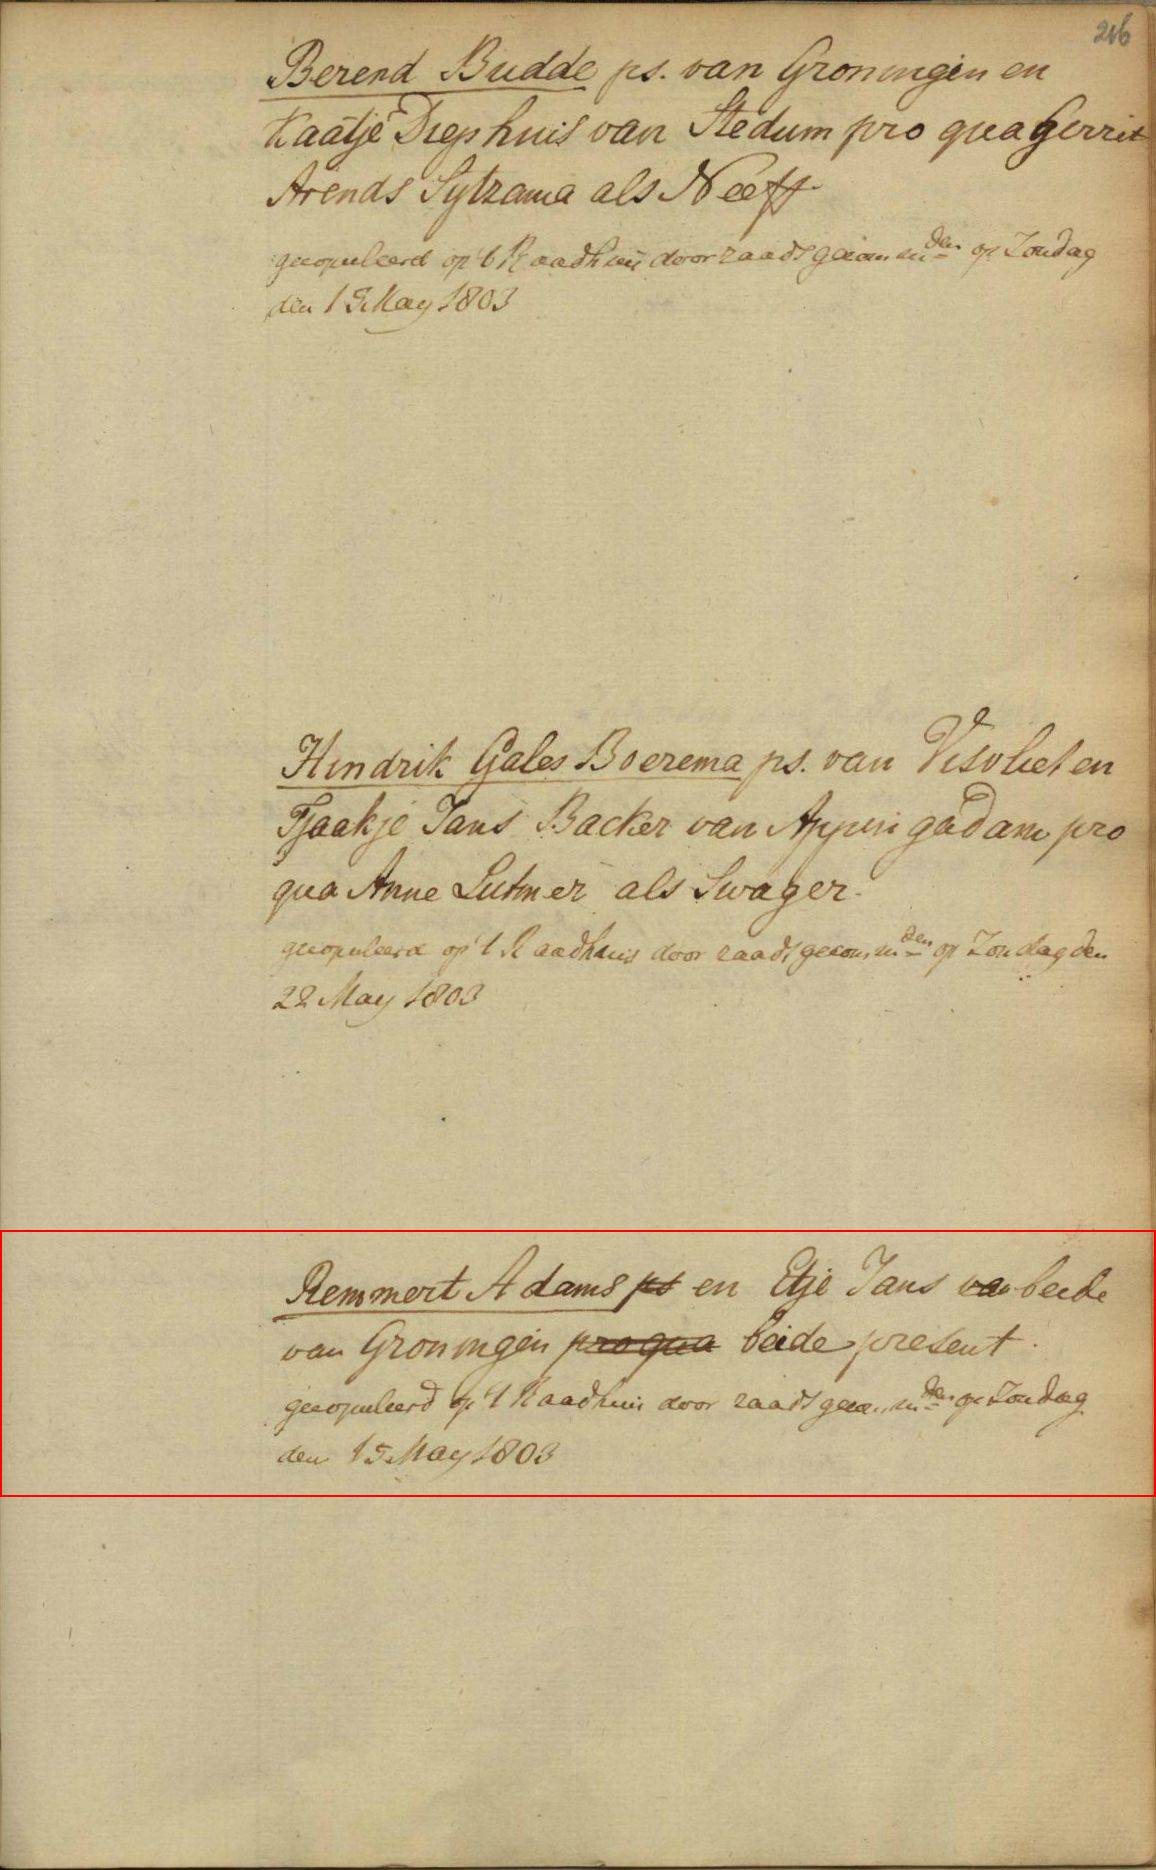 216
Berend Budde ps. van Groningen en
Kaatje Diephuis van Stedum pro qua Gerrit
Arends Sytzama als Neeff.
gecopuleerd op 't Raadhuis door raadsgecommden op Zondag
den 15 May 1803
Hindrik Gales Boerema ps. van Visvliet en
Tjaakje Jans Backer van Appingadam pro
qua Anne Lutmer als Swager.
gecopuleerd op 't Raadhuis door raadsgecommden op Zondag den
22 May 1803
Remmert Adams ps en Etje Jans van beide
van Groningen pro qua beide present.
gecopuleerd op 't Raadhuis door raadsgecommden op Zondag
den 15 May 1803